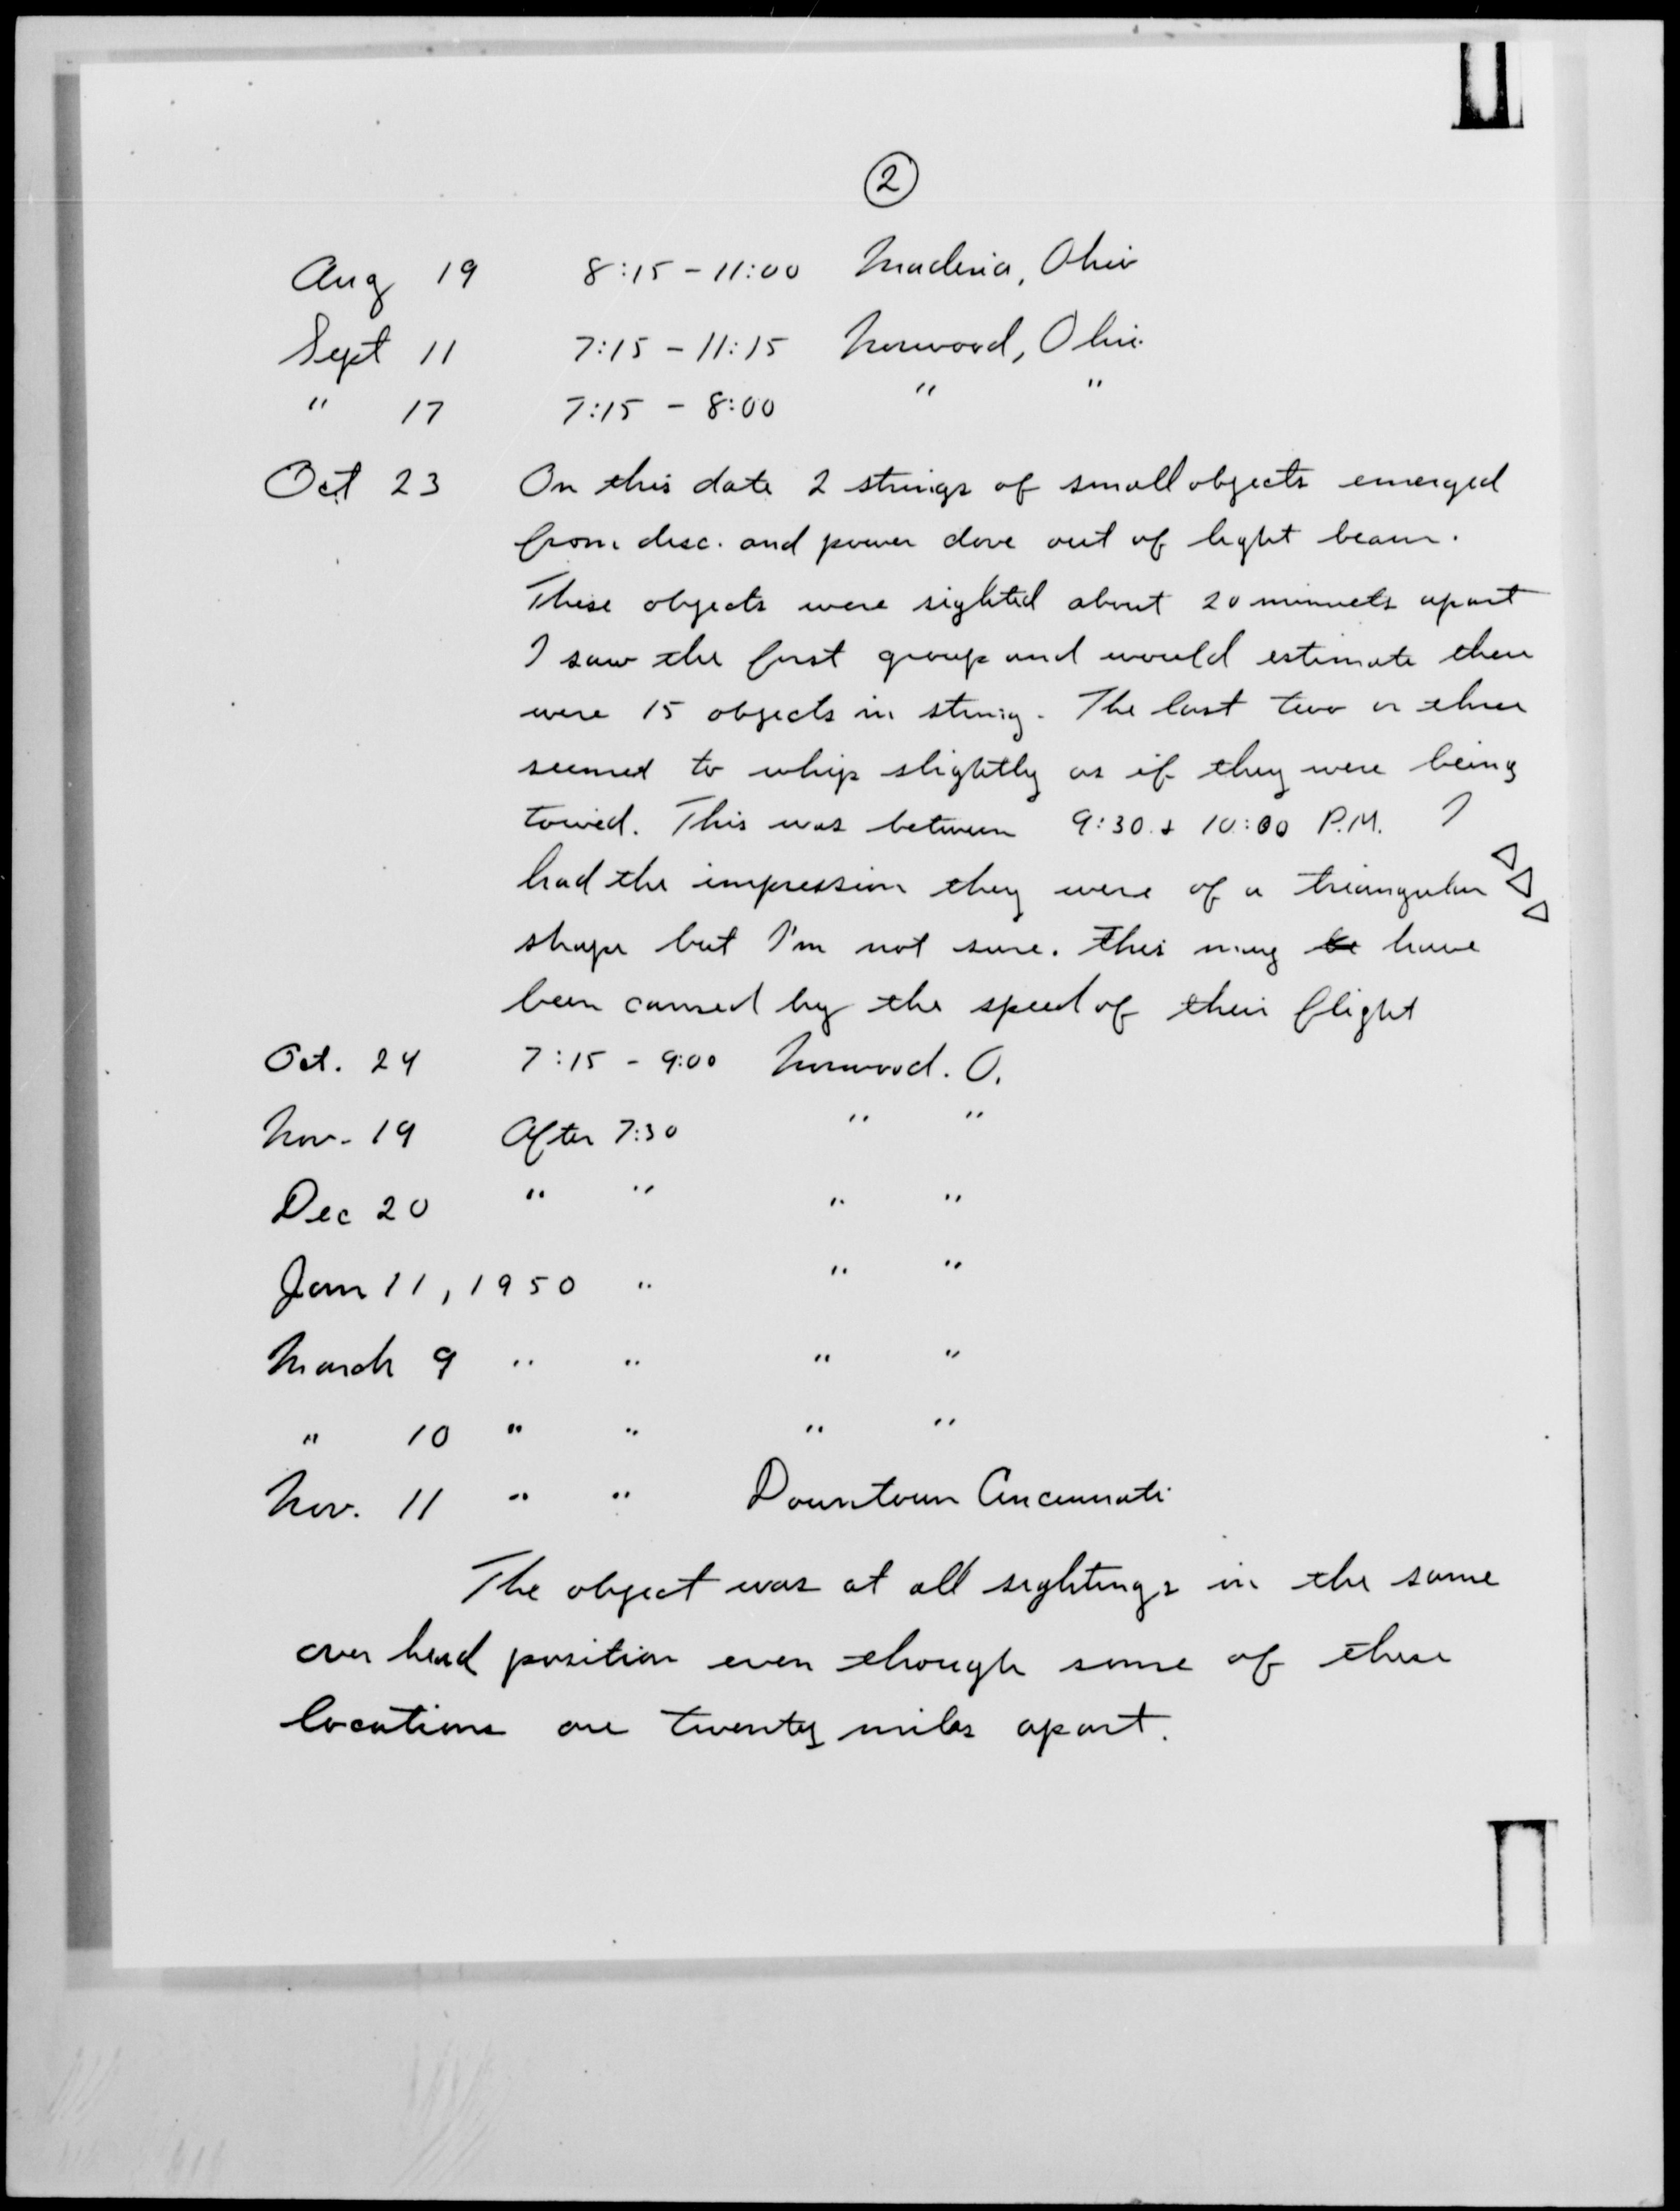 2
Aug 19 8:15 - 11:00 Maderia, Ohio
Sept 11 7:15 - 11:15 Norwood, Ohio
" 17 7:15 - 8:00 " "
Oct 23 On this date 2 strings of small objects emerged
from disc. and power dove out of light beam.
These objects were sighted about 20 minuets apart
I saw the first group and would estimate there
were 15 objects in string. The last two or three
seemed to whip slightly as if they were being
towed. This was between 9:30 & 10:00 P.M. I
had the impression they were of a triangular
shape but I'm not sure. This may be have
been caused by the speed of their flight
Oct. 24 7:15 - 9:00 Norwood. O.
Nov. 19 After 7:30 " "
Dec 20 " " " "
Jan 11, 1950 " " "
March 9 " " " "
" 10 " " " "
Nov. 11 " " Downtown Cincinnati
The object was at all sightings in the same
over head position even though some of these
locations are twenty miles apart.